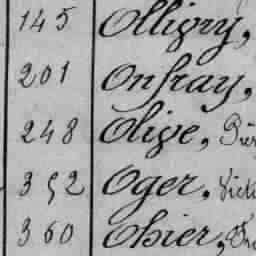 145 Olligry,
201 Onfray,
248 Olive, Pier
352 Oger, Vict
360 Obier,